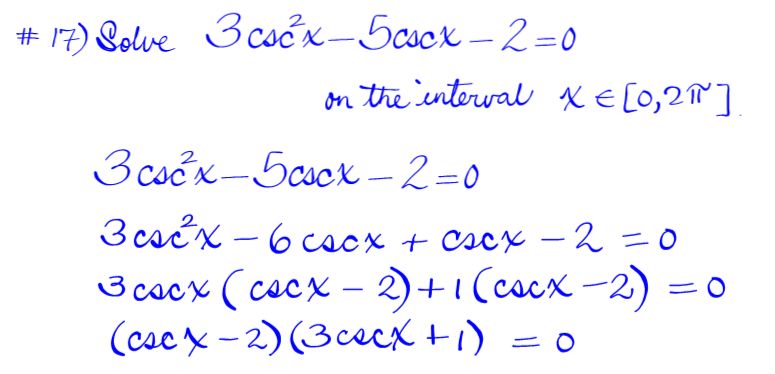 # 17) Solve 3csc²x - 5cscx - 2 = 0
on the interval x ∈ [0,2π]
3csc²x - 5cscx - 2 = 0
3csc²x - 6cscx + cscx - 2 = 0
3cscx (cscx - 2) + 1(cscx - 2) = 0
(cscx - 2)(3cscx + 1) = 0